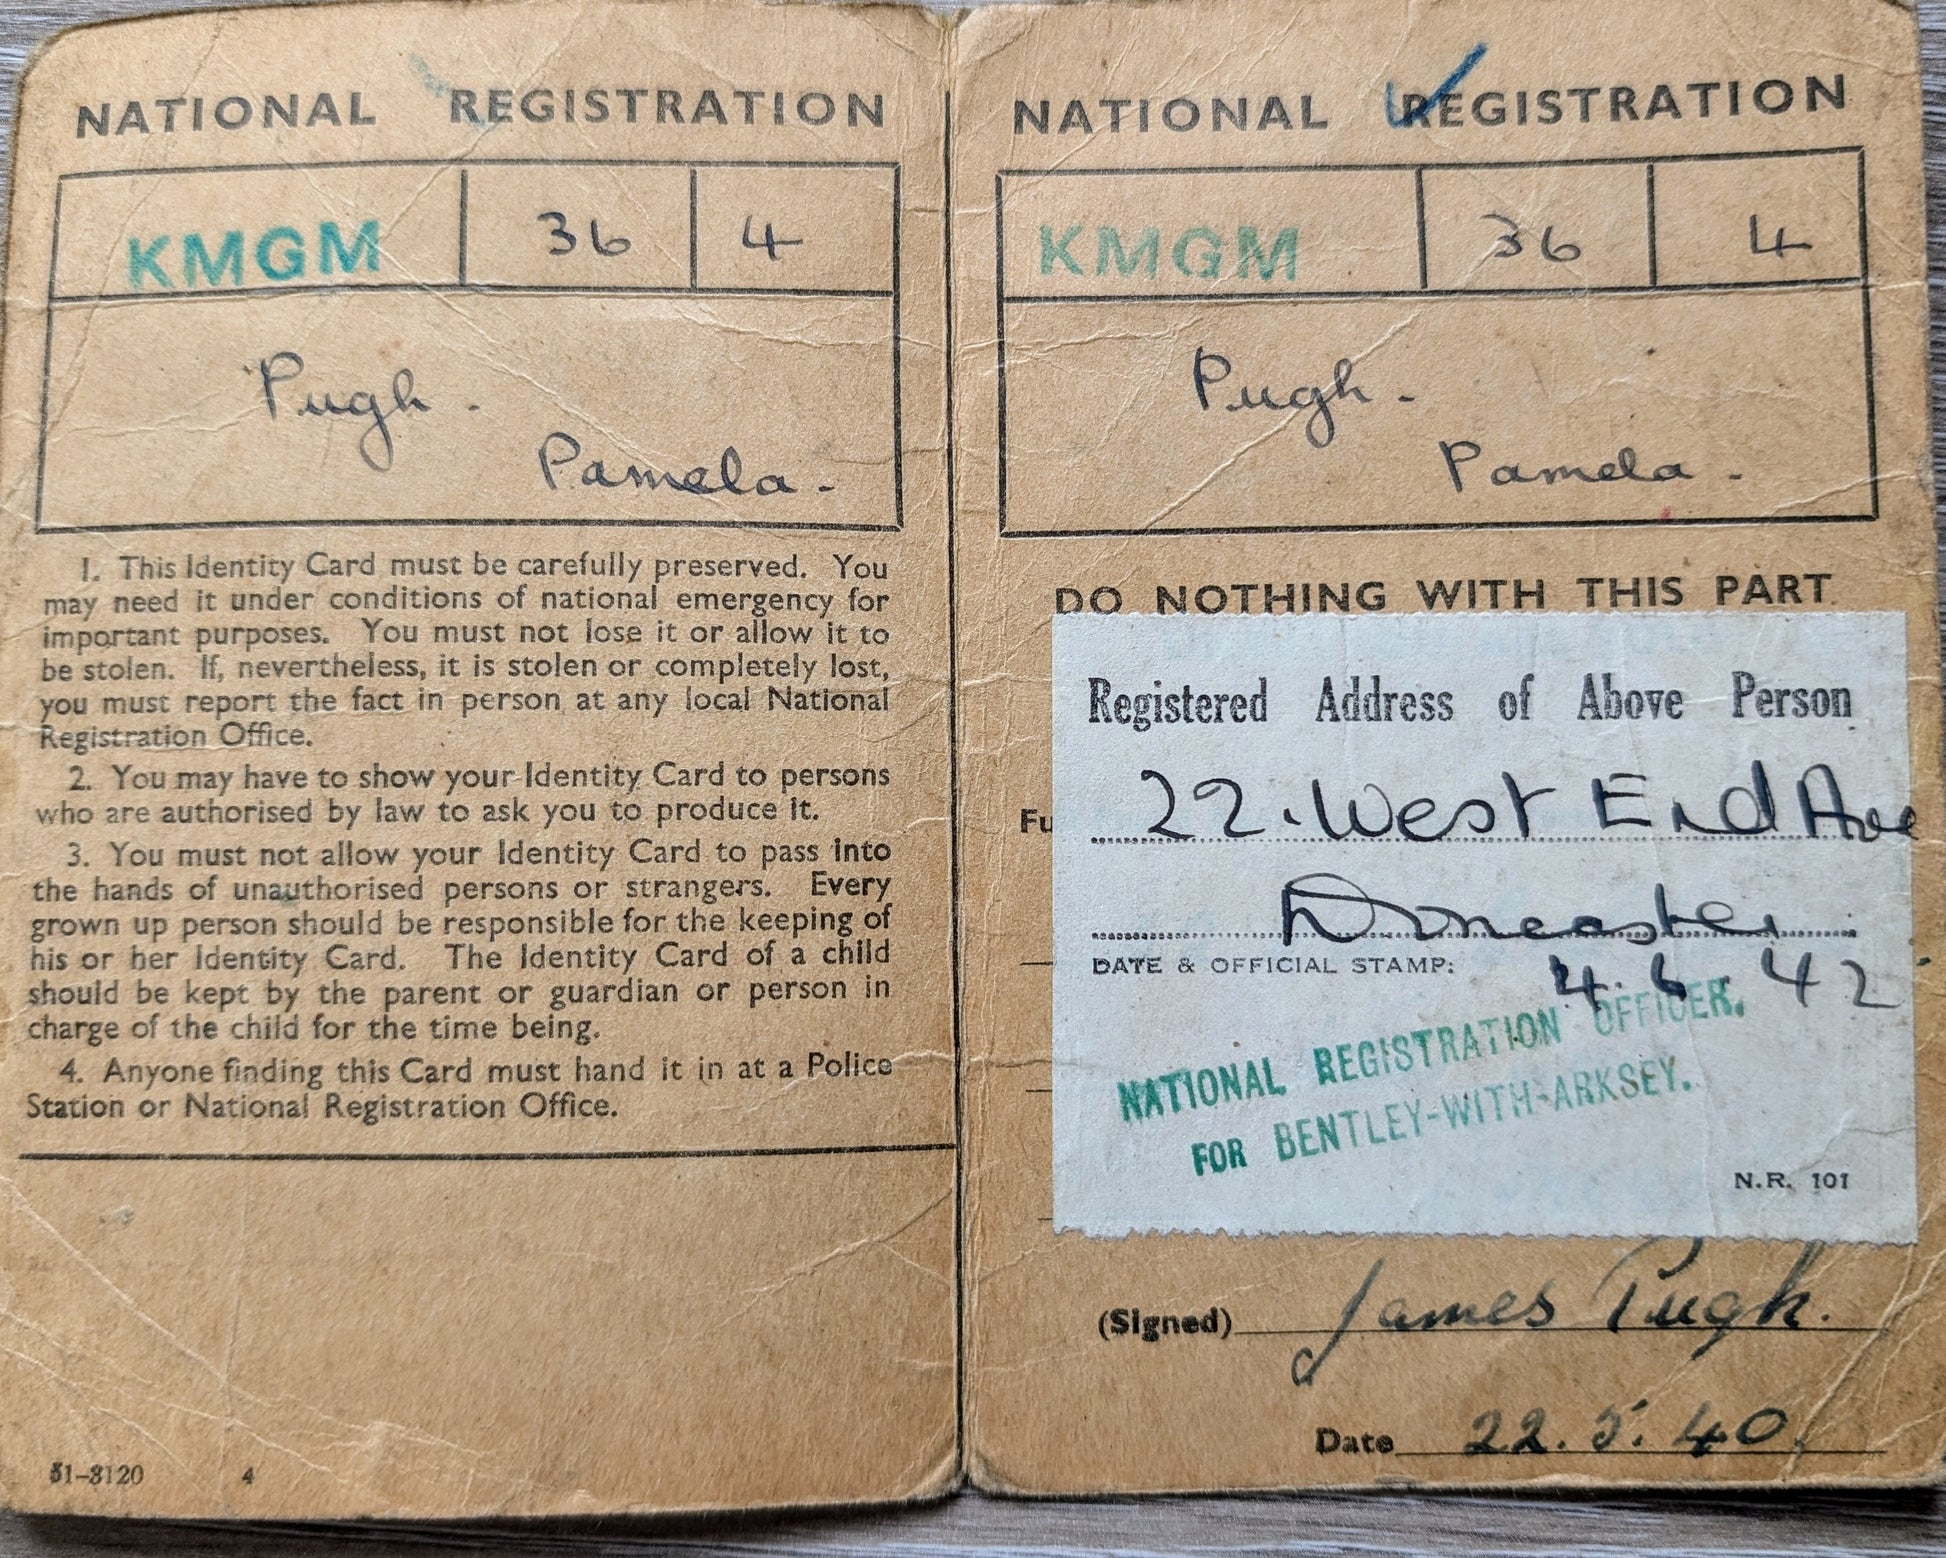 NATIONAL REGISTRATION
KMGM 36 4
Pugh.
Pamela.
1. This Identity Card must be carefully preserved. You
may need it under conditions of national emergency for
important purposes. You must not lose it or allow it to
be stolen. If, nevertheless, it is stolen or completely lost,
you must report the fact in person at any local National
Registration Office.
2. You may have to show your Identity Card to persons
who are authorised by law to ask you to produce it.
3. You must not allow your Identity Card to pass into
the hands of unauthorised persons or strangers. Every
grown up person should be responsible for the keeping of
his or her Identity Card. The Identity Card of a child
should be kept by the parent or guardian or person in
charge of the child for the time being.
4. Anyone finding this Card must hand it in at a Police
Station or National Registration Office.
51-3120 4
NATIONAL REGISTRATION
KMGM 36 4
Pugh.
Pamela.
DO NOTHING WITH THIS PART
Registered Address of Above Person
Fu
22. West End Ave
Doncaster
DATE & OFFICIAL STAMP: 4.6.42
NATIONAL REGISTRATION OFFICER.
FOR BENTLEY-WITH-ARKSEY.
N.R. 101
(Signed) James Pugh.
Date 22.5.40